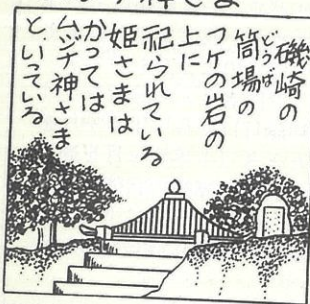 磯崎の
筒場の
どうば
フケの岩の
上に
祀られている
姫さまは
かっては
ムジナ神さま
といっている